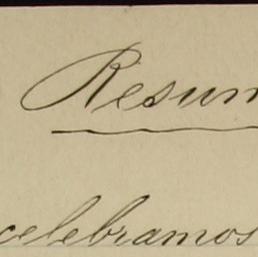 Resum
celebramos